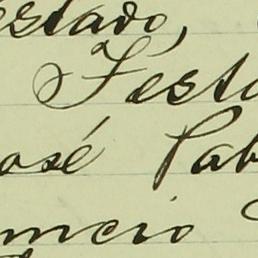 estado,
Festa
José Pab
mcio